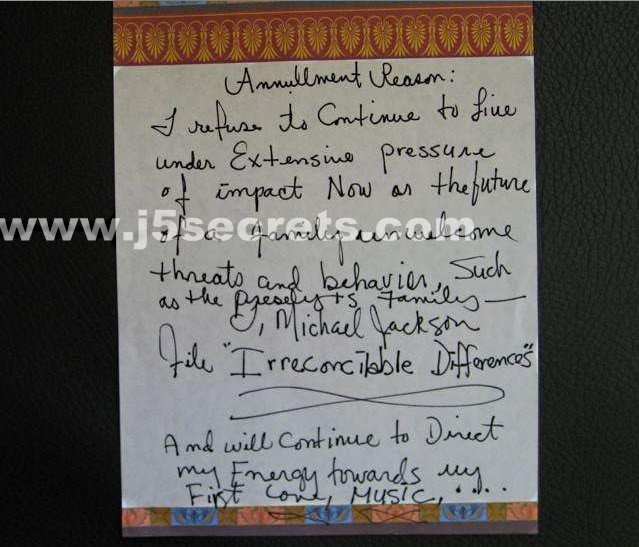 Annullment Reason:
I refuse to Continue to live
under Extensive pressure
of impact Now or the future
www.j5secrets.com
of a family unwelcome
threats and behavior, Such
as the Presely's Family —
, Michael Jackson
File "Irreconcilable Differences"
And will Continue to Direct
my Energy towards my
First Love, MUSIC, .....